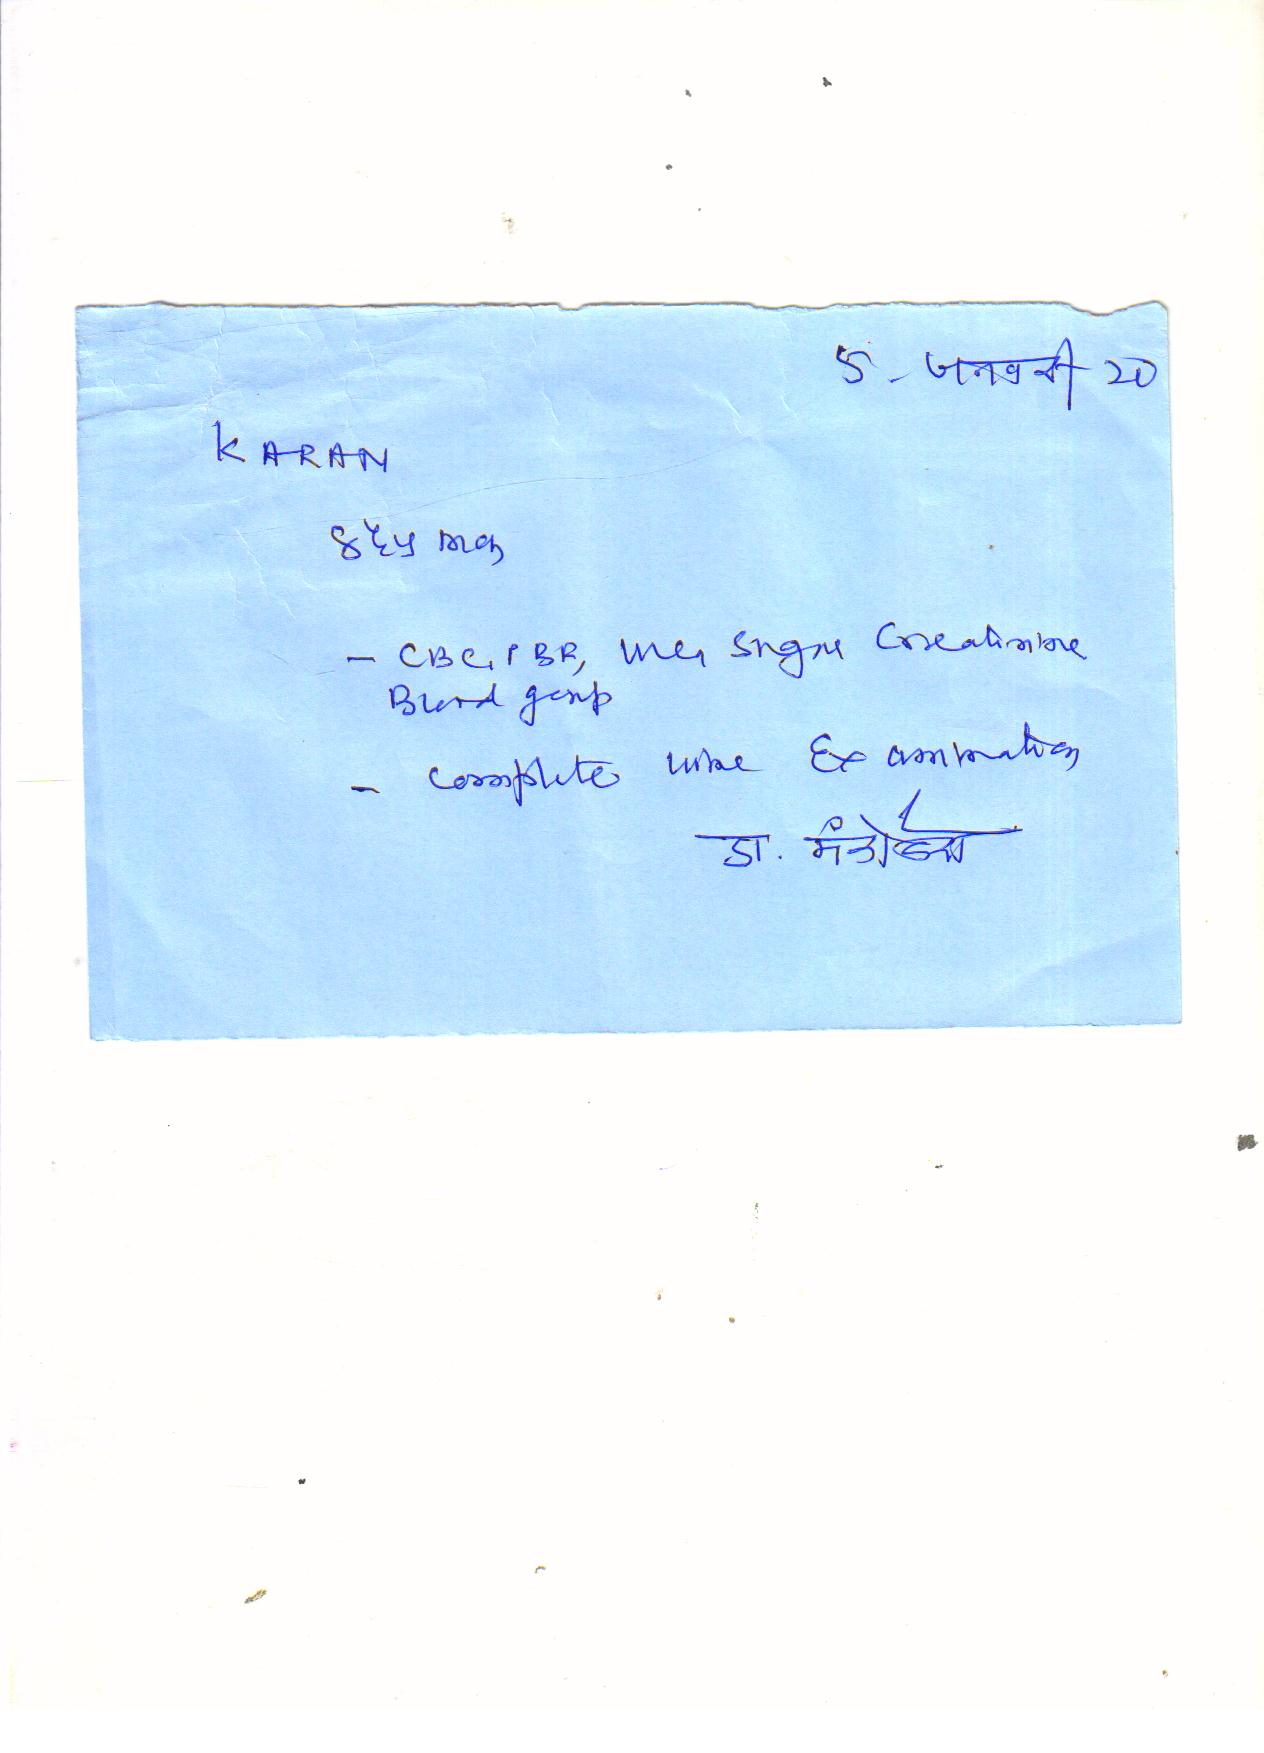 5 - जनवरी 20
KARAN
- CBC, PBR, Sugar Creatinine
Blood group
- Complete urine Examination
डा.